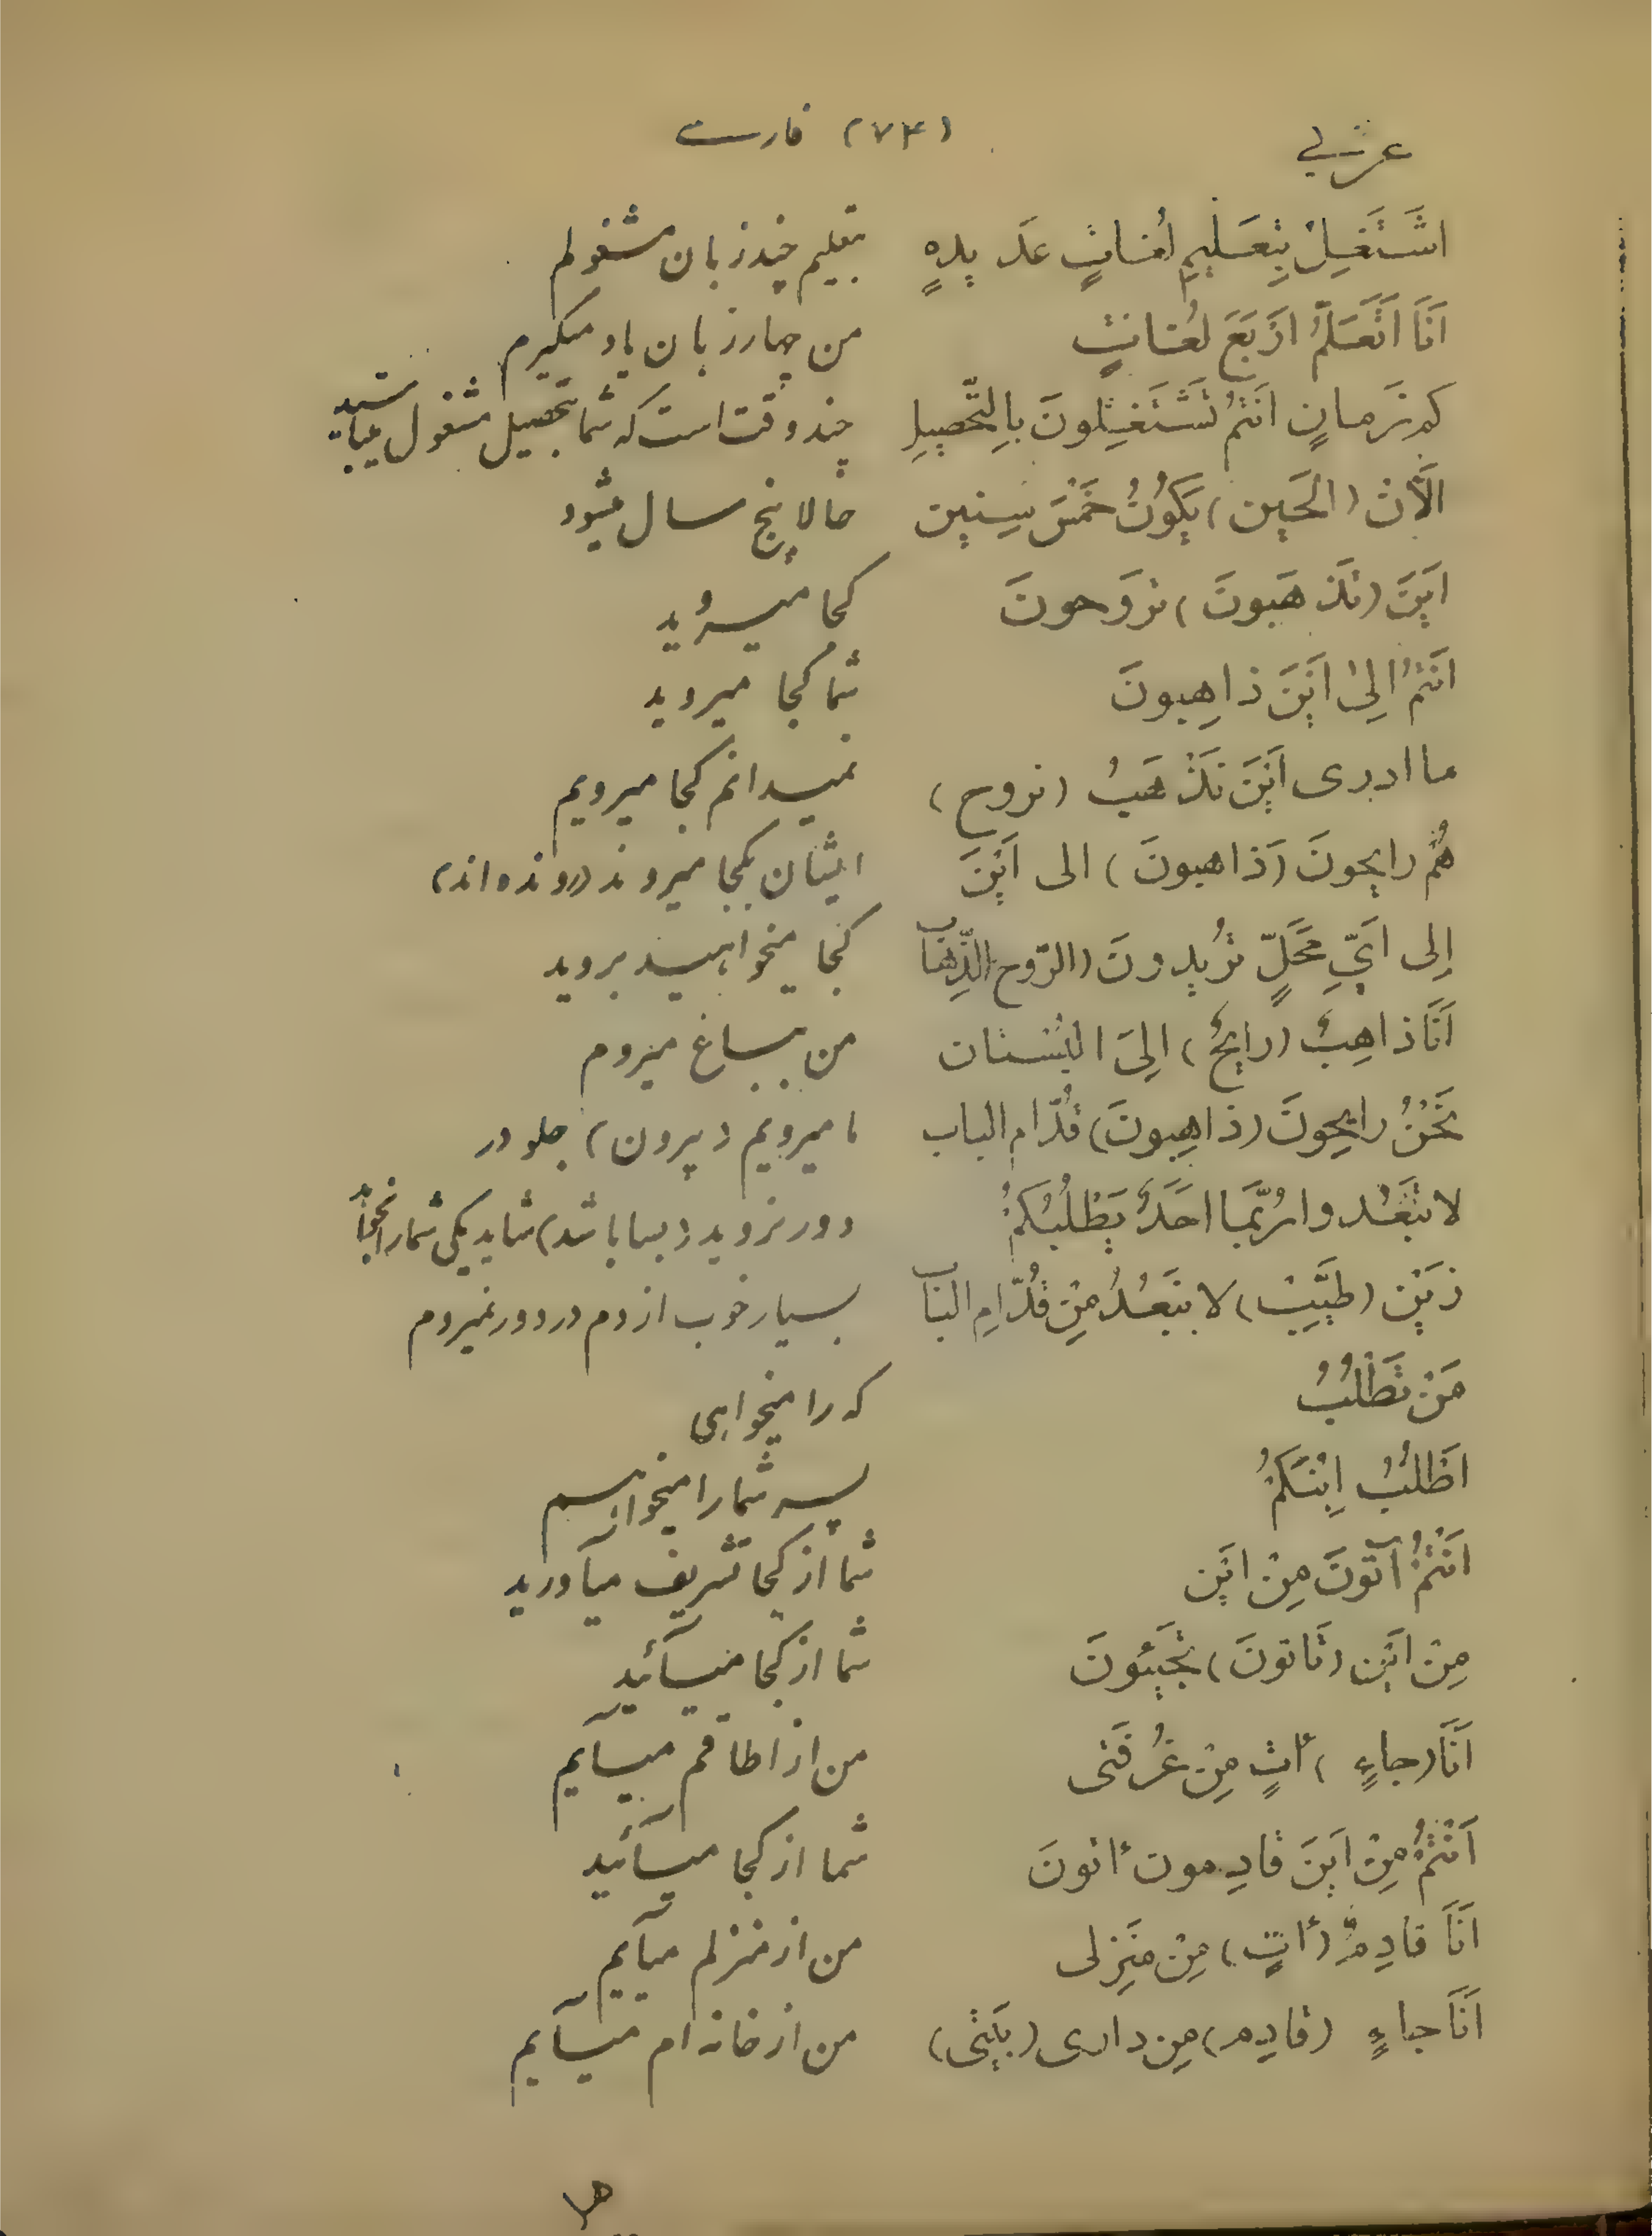 عربی (۷۴) فارسی
اَشْتَغِلُ بِتَعْلیمِ لُغاتٍ عَدیدهٍ بتعلیم چند زبان مشغولم
اَنَا اَتَعَلَّمُ اَرْبَعَ لُغاتٍ من چهار زبان یاد میگیرم
کم زَمانٍ اَنْتُم تَشْتَغِلونَ بِالتَّحْصیلِ چند وقت است که شما بتحصیل مشغول میباشید
اَلْآنَ (الحَین) یَکُونُ خَمْسَ سِنین حالا پنج سال میشود
اَیْنَ (تَذْهَبونَ) تَروَحونَ کجا میرَوید
اَنْتُمْ اِلیٰ اَیْنَ ذاهِبونَ شما کجا میروید
ما ادری اَیْنَ نَذْهَبُ (نروح) نمیدانم کجا میرویم
هُمْ رایحونَ (ذاهبونَ) الی اَیْنَ ایشان بکجا میروند (رونده‌اند)
اِلی اَیِّ مَحَلٍّ تُریدونَ (الرّوح) الذِّهاب کجا میخواهید بروید
اَنَا ذاهِبٌ (رایحٌ) اِلیَ البُسْتان من بباغ میروم
نَحْنُ رایحونَ (ذاهِبونَ) قُدّام الباب ما میرویم (بیرون) جلو در
لا تَبْعُدوا رُبَّما اَحَدٌ یَطْلُبُکُمْ دور نروید (بسا باشد) شاید یکی شما را بخواهد
زَیْن (طَیِّبْ) لا نَبْعُدُ مِنْ قُدّامِ الباب بسیار خوب از دم در دور نمیروم
مَنْ تَطْلُبُ که را میخواهی
اَطْلُبُ اِبْنَکُمْ پسر شما را میخواهم
اَنْتُمْ آتونَ مِنْ اَیْن شما از کجا تشریف میآورید
مِنْ اَیْن (تَاتونَ) تَجیئونَ شما از کجا میآئید
اَنَا (جاءٍ) أتٍ مِنْ غُرْفَتی من از اطاقم میآیم
اَنْتُمْ مِنْ اَیْنَ قادِمون أتونَ شما از کجا میآئید
اَنَا قادِمٌ (أتٍ) مِنْ مَنْزِلی من از منزلم میآیم
اَنَا جاءٍ (قادِم) مِن داری (بَیْتی) من از خانه ام میآیم